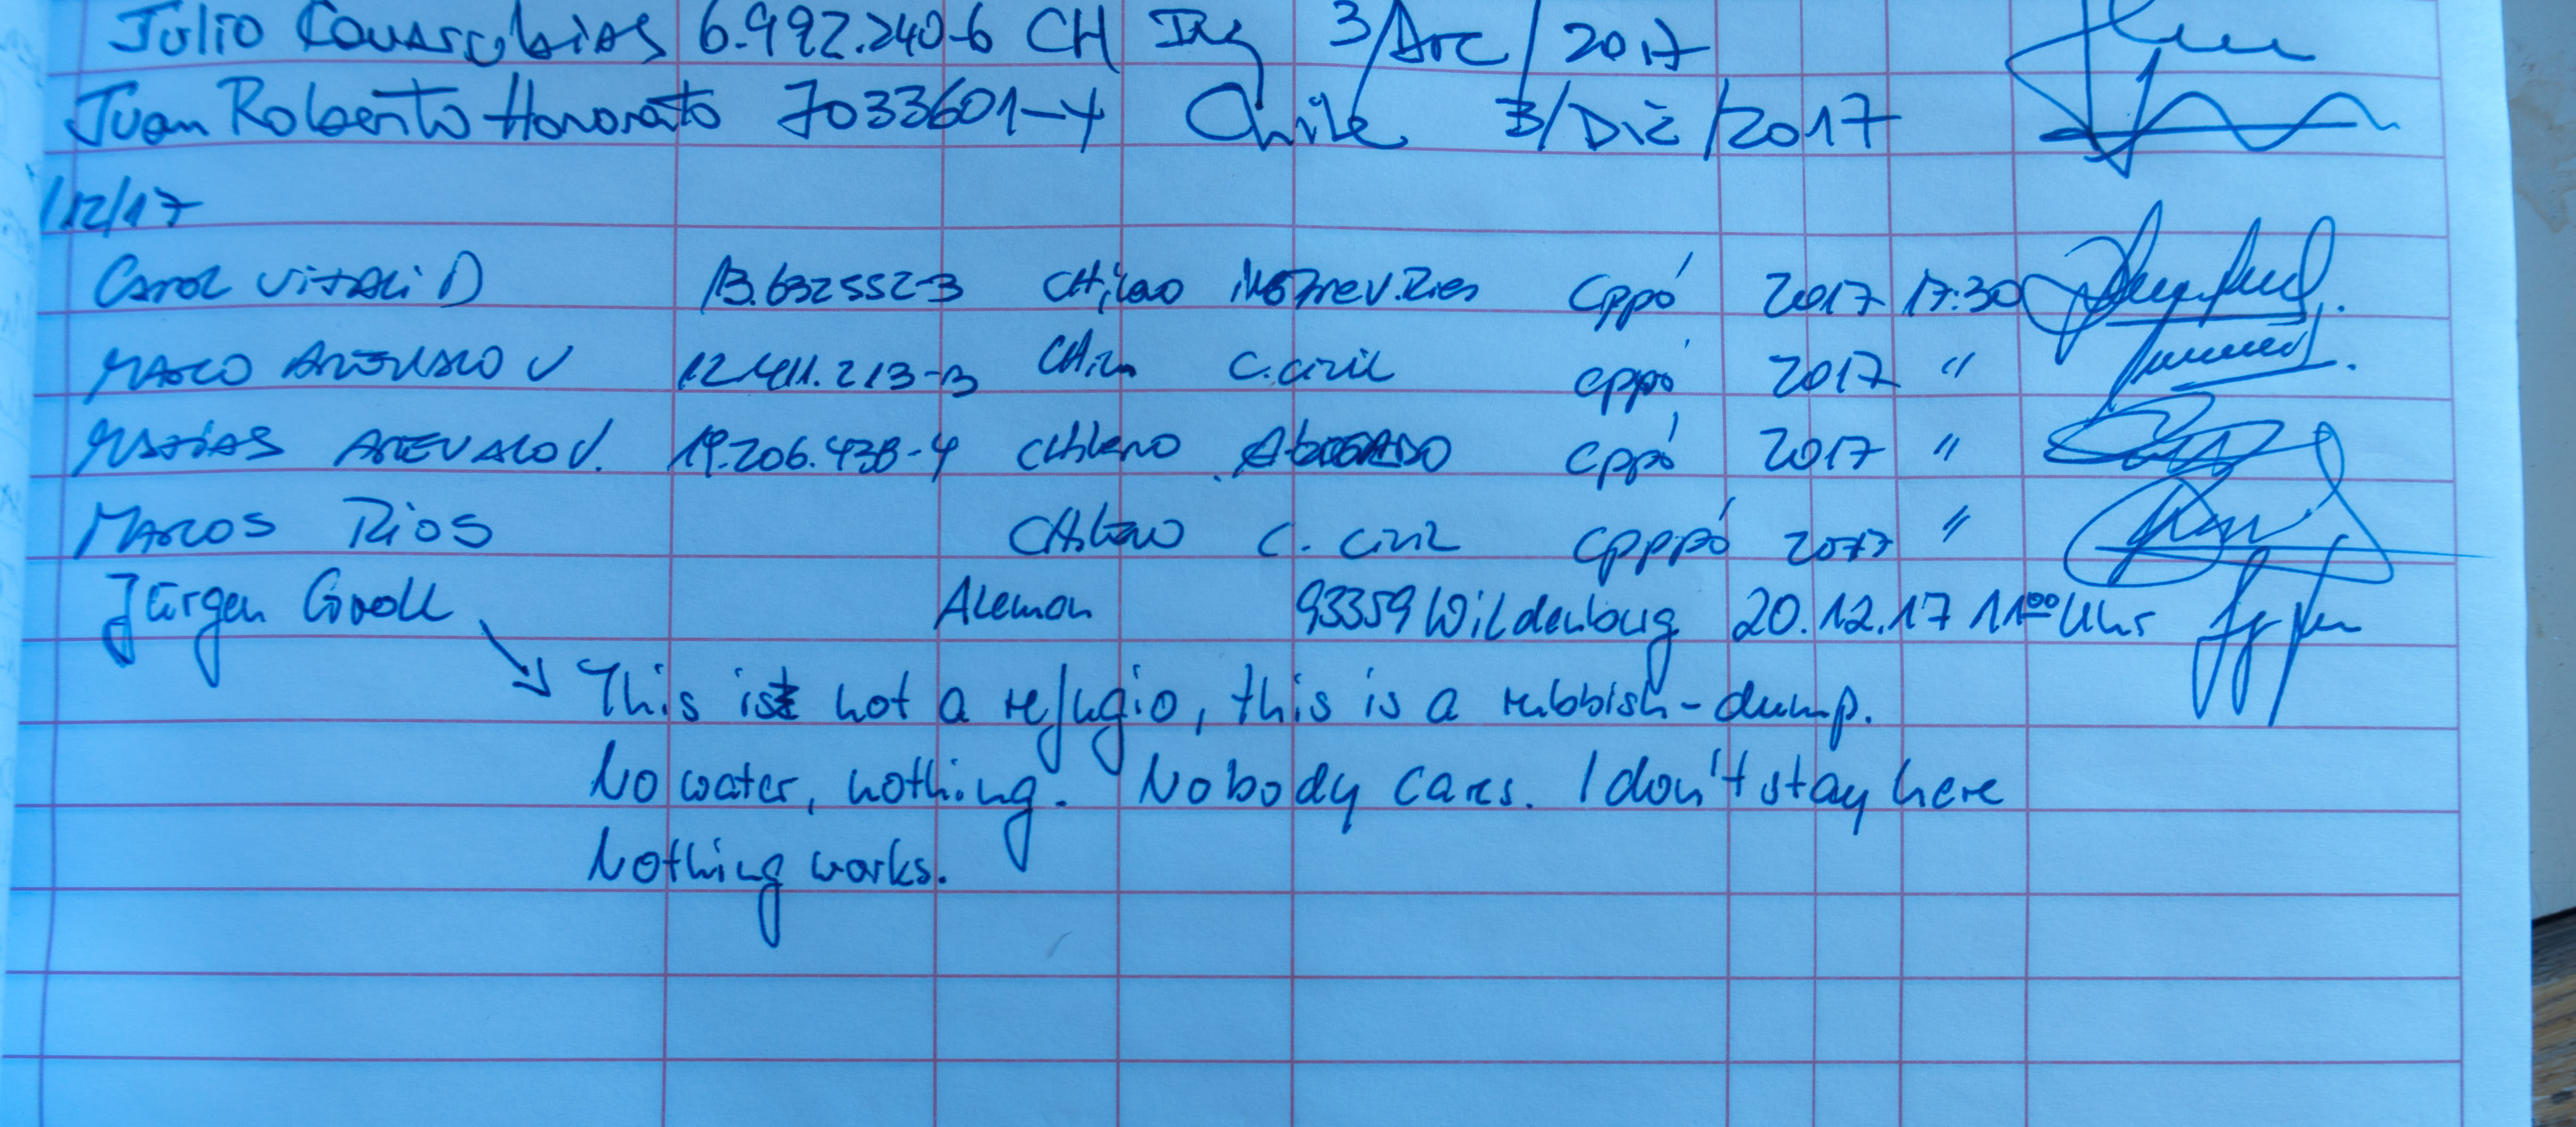 Julio Covarrubias 6.992.240-6 CH Ing 3/Dic/2017
Juan Roberto Honorato 7033601-4 Chile 3/Dic/2017
/12/17
Carol Vitali D 13.632552-3 CHileno 2017 17:30
Marco Arevalo V 12.411.213-3 CHileno C. Civil 2017 "
Matias AREVALO V. 19.206.438-4 CHileno Abogado 2017 "
MARCOS RIOS CHileno C. Civil 2017 "
Jürgen Groll Aleman 93359 Wildenburg 20.12.17 11⁰⁰ Uhr
This ist not a refugio, this is a rubbish-dump.
No water, nothing. Nobody cares. I don't stay here
Nothing works.